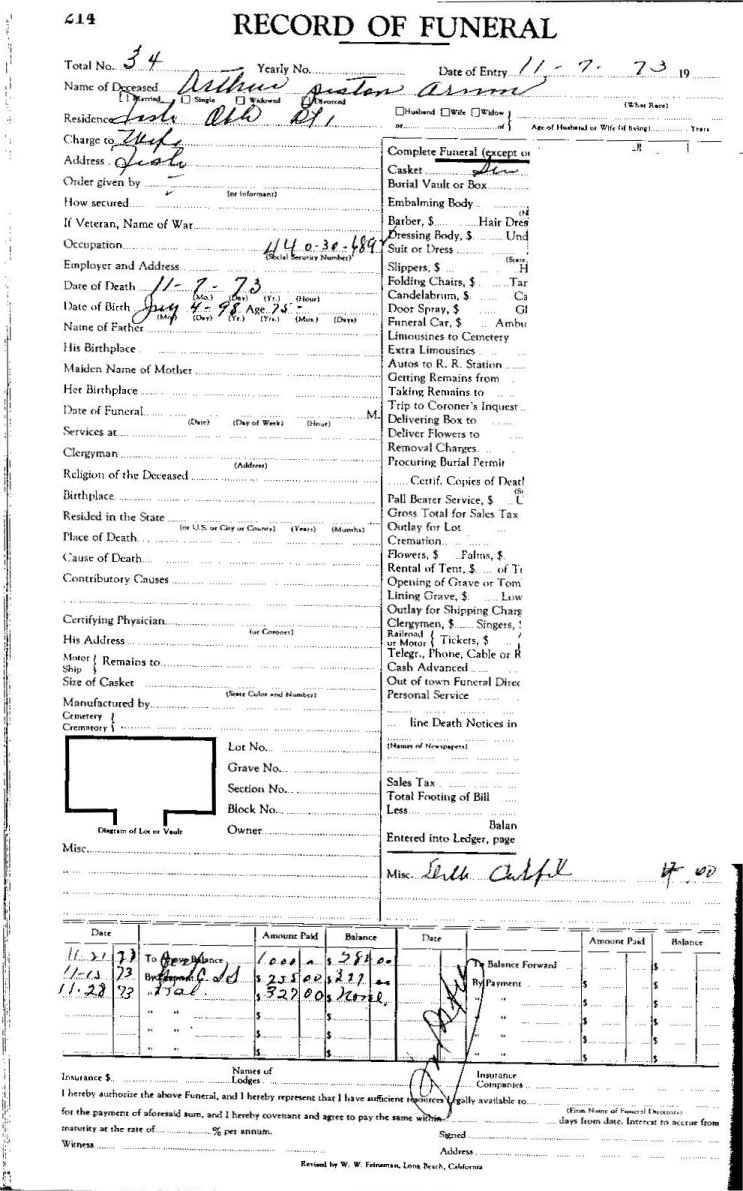 214
RECORD OF FUNERAL
Total No. 34 Yearly No. Date of Entry 11-7-73 19
Name of Deceased Arthur
Married Single Widowed Divorced
(What Race)
Residence Okla Rt 1
Husband Wife Widow
or of
Age of Husband or Wife (if living) Years
Charge to Wife
Address
Order given by
(or Informant)
How secured
If Veteran, Name of War
Occupation
(Social Security Number)
Employer and Address
Date of Death 11-7-73
(Mo.) (Day) (Yr.) (Hour)
Date of Birth July 4-98 Age 75-
(Mo.) (Day) (Yr.) (Yrs.) (Mos.) (Days)
Name of Father
His Birthplace
Maiden Name of Mother
Her Birthplace
Date of Funeral M.
(Date) (Day of Week) (Hour)
Services at
Clergyman
(Address)
Religion of the Deceased
Birthplace
Resided in the State
(or U.S. or City or County) (Years) (Months)
Place of Death
Cause of Death
Contributory Causes
Certifying Physician
(or Coroner)
His Address
Motor Ship } Remains to
Size of Casket
(State Color and Number)
Manufactured by
Cemetery
Crematory
Lot No.
Grave No.
Section No.
Block No.
Diagram of Lot or Vault
Owner
Misc.
Complete Funeral (except or
Casket
Burial Vault or Box
Embalming Body
Barber, $ Hair Dres
Dressing Body, $ Und
Suit or Dress
(State,
Slippers, $ H
Folding Chairs, $ Tar
Candelabrum, $ Ca
Door Spray, $ Gl
Funeral Car, $ Ambu
Limousines to Cemetery
Extra Limousines
Autos to R. R. Station
Getting Remains from
Taking Remains to
Trip to Coroner's Inquest
Delivering Box to
Deliver Flowers to
Removal Charges
Procuring Burial Permit
Certif. Copies of Deat
Pall Bearer Service, $
Gross Total for Sales Tax
Outlay for Lot
Cremation
Flowers, $ Palms, $
Rental of Tent, $ of Te
Opening of Grave or Tom
Lining Grave, $ Low
Outlay for Shipping Charg
Clergymen, $ Singers, $
Railroad or Motor { Tickets, $
Telegr., Phone, Cable or R
Cash Advanced
Out of town Funeral Direc
Personal Service
line Death Notices in
(Names of Newspapers)
Sales Tax
Total Footing of Bill
Less
Balan
Entered into Ledger, page
Misc. Death
Date Amount Paid Balance Date Amount Paid Balance
11 21 73 To Above Balance 1000
To Balance Forward
11-13 73 By
By Payment
11-28 73 " Bal. $ 327 00 $ None
Insurance $ Names of Lodges Insurance Companies
I hereby authorize the above Funeral, and I hereby represent that I have sufficient resources legally available to
(Firm Name of Funeral Directors)
for the payment of aforesaid sum, and I hereby covenant and agree to pay the same within days from date. Interest to accrue from
maturity at the rate of % per annum. Signed
Witness Address
Revised by W. W. Feineman, Long Beach, California